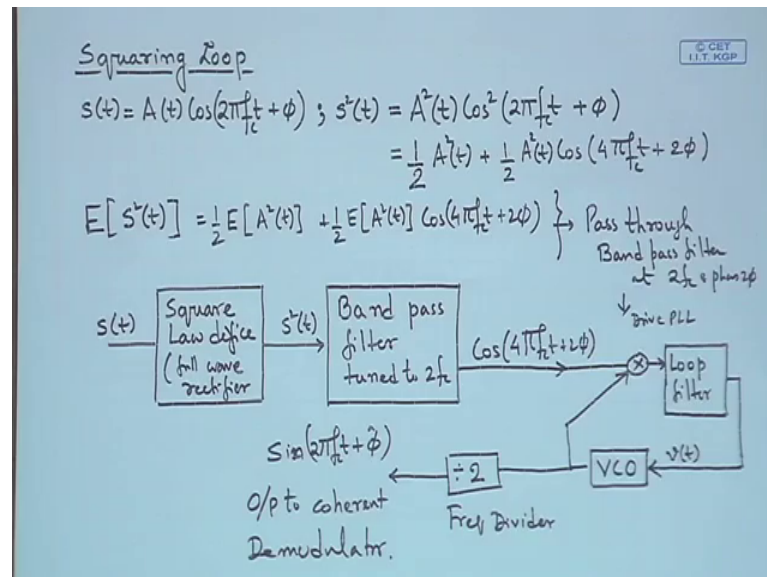 Squaring Loop
© CET
I.I.T. KGP
S(t) = A(t) Cos(2πf_c t + ϕ) ; s²(t) = A²(t) Cos²(2πf_c t + ϕ)
= 1/2 A²(t) + 1/2 A²(t) Cos(4πf_c t + 2ϕ)
E[S²(t)] = 1/2 E[A²(t)] + 1/2 E[A²(t)] Cos(4πf_c t + 2ϕ) } → Pass through
Band pass filter
at 2f_c & phase 2ϕ
↓ Drive PLL
S(t)
Square
Law device
(full wave
rectifier
s²(t)
Band pass
filter
tuned to 2f_c
Cos(4πf_c t + 2ϕ)
×
Loop
filter
v(t)
VCO
÷2
Freq Divider
Sin(2πf_c t + ϕ̂)
O/p to coherent
Demodulator.